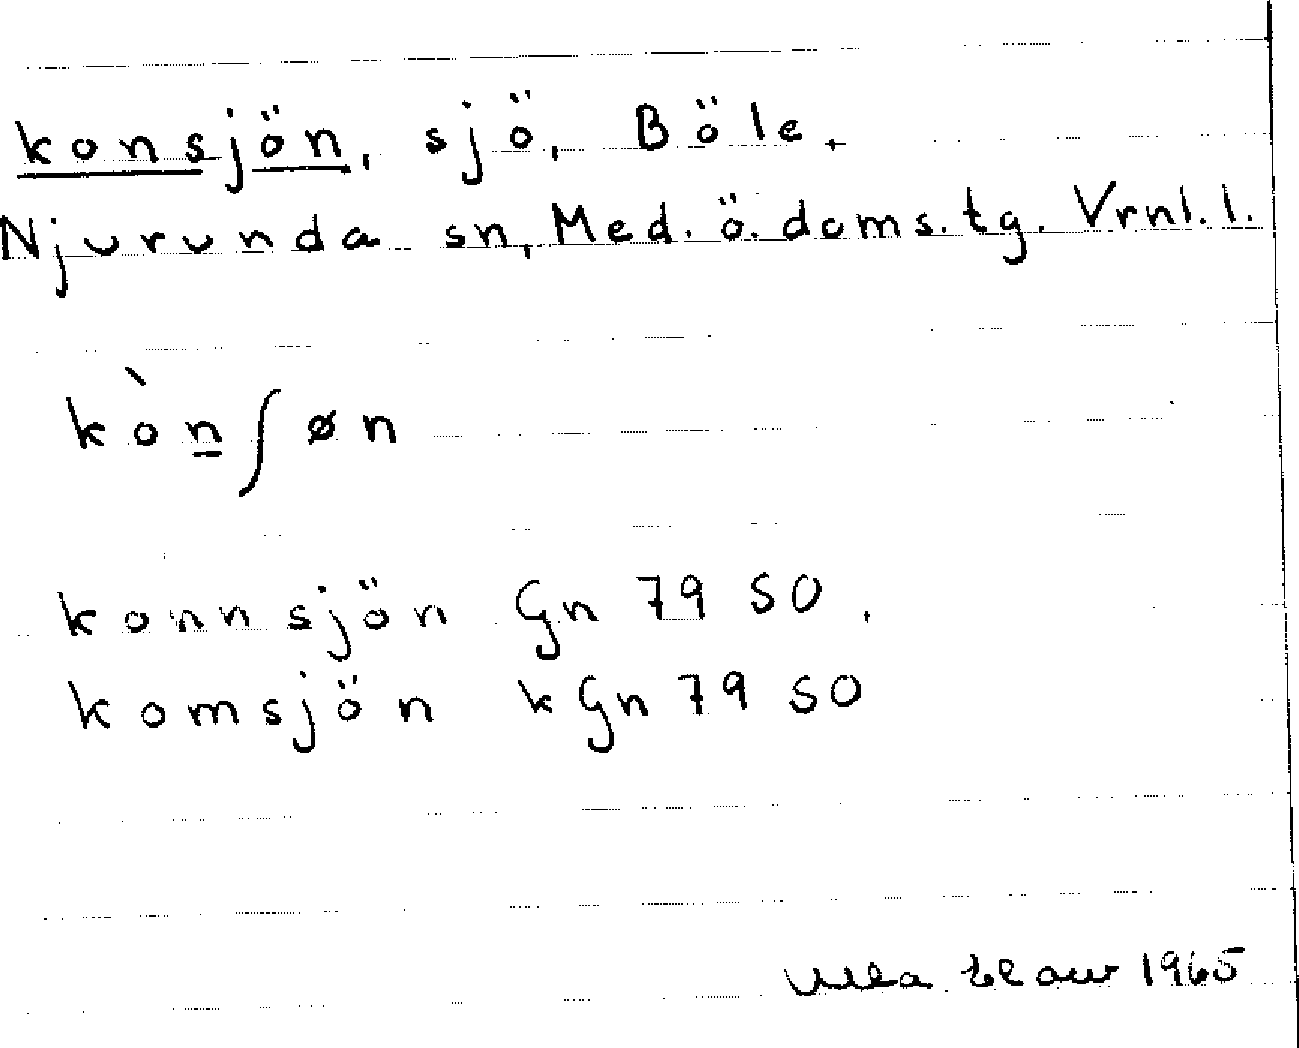 konsjön, sjö, Böle,
Njurunda sn, Med. ö. doms. tg. Vrnl. l.
kòn̲ʃøn
konnsjön Gn 79 SO,
komsjön kGn 79 SO
Ulla 1965